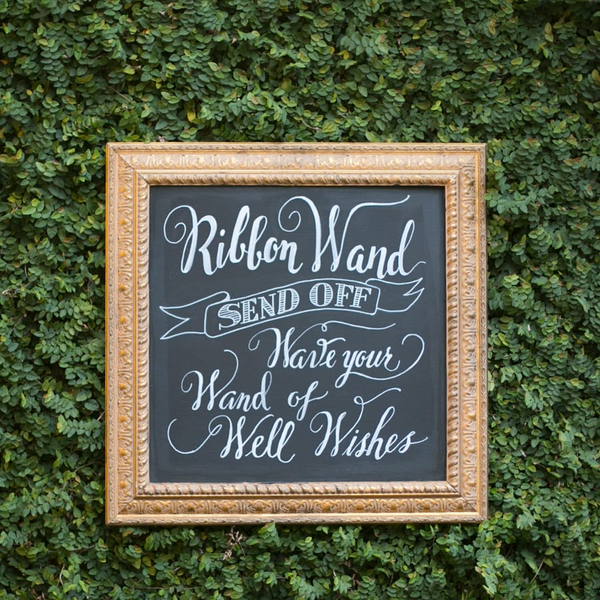 Ribbon Wand
SEND OFF
Wave your
Wand of
Well Wishes